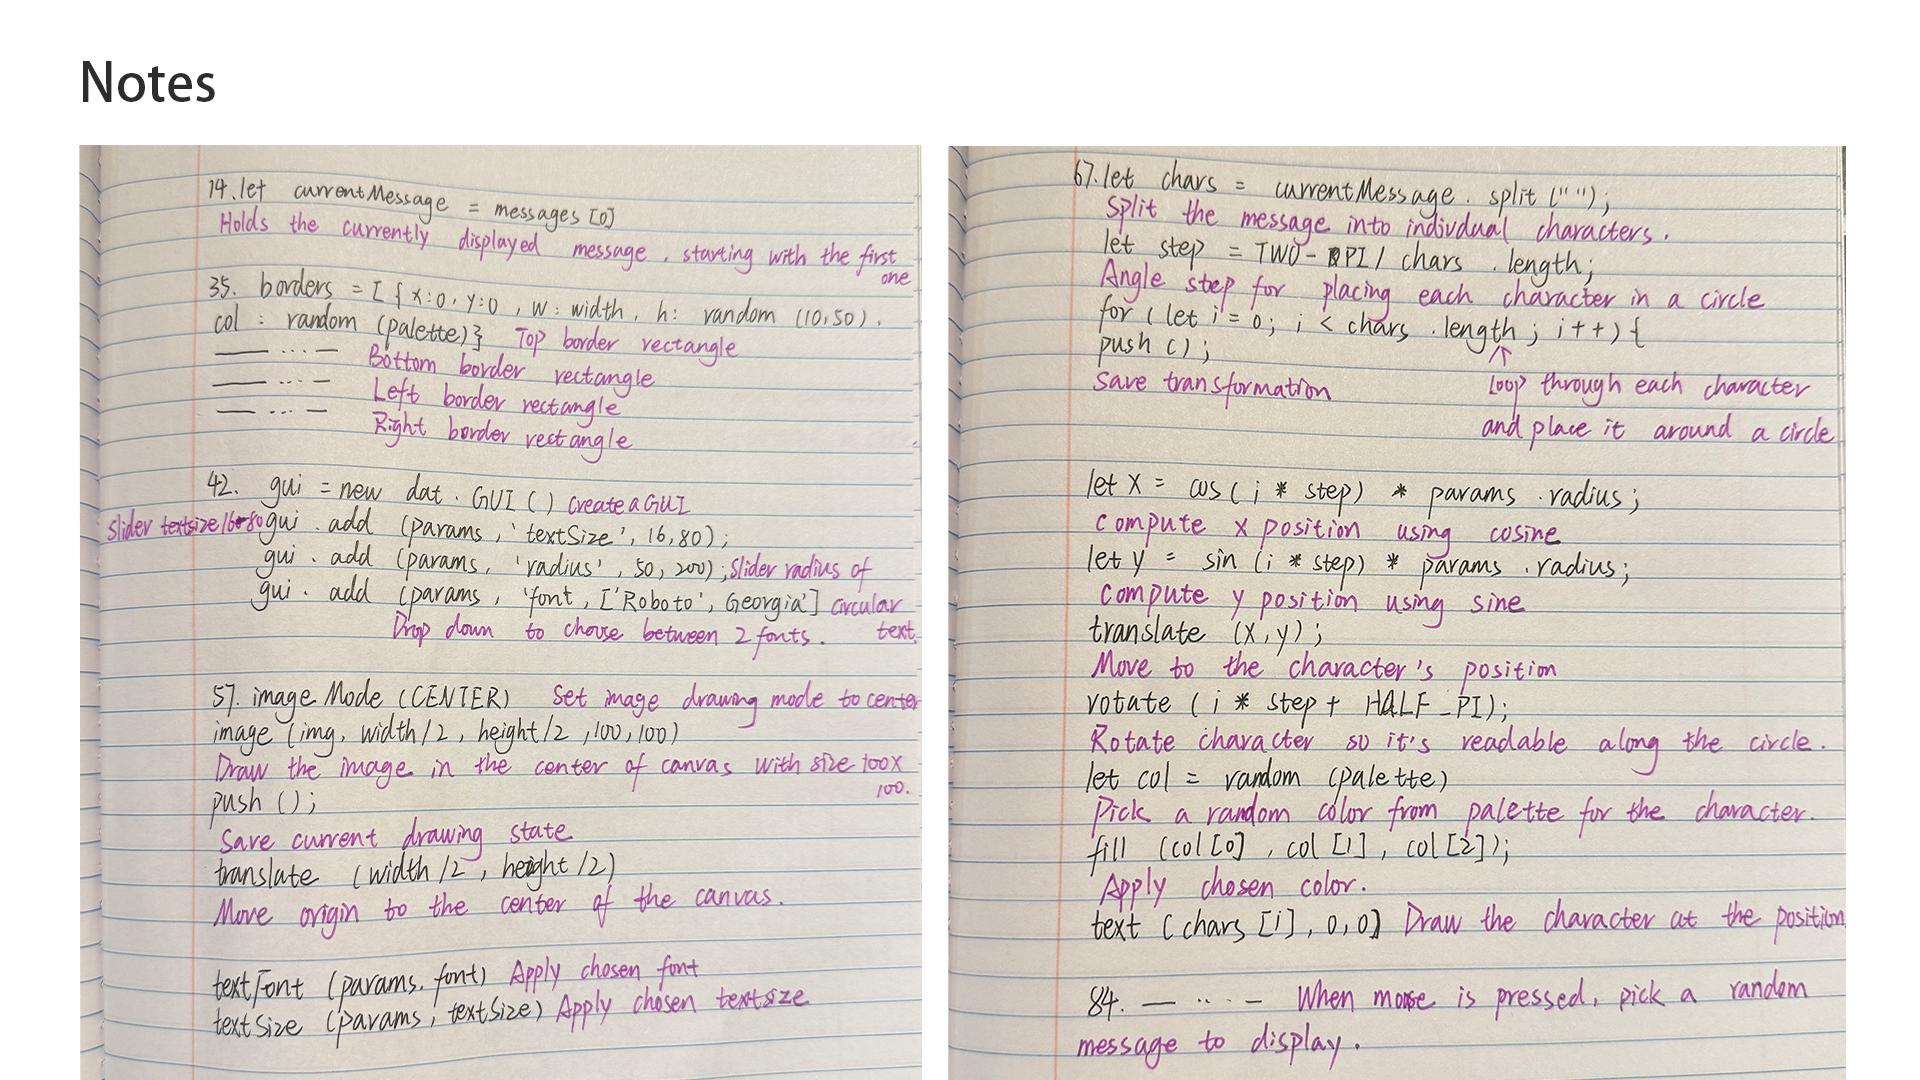 Notes
14. let currentMessage = messages [0]
Holds the currently displayed message, starting with the first
one
35. borders = [ { x:0, y:0, w: width, h: random (10,50),
col : random (palette)} Top border rectangle
—— ... — Bottom border rectangle
—— ... — Left border rectangle
—— ... — Right border rectangle
42. gui = new dat. GUI () Create a GUI
Slider textsize 16-80 gui . add (params, 'textSize', 16,80);
gui . add (params, 'radius', 50, 200); Slider radius of
gui . add (params, 'font, ['Roboto', Georgia'] circular
Drop down to choose between 2 fonts. text.
57. image Mode (CENTER) Set image drawing mode to center
image (img, width/2, height/2, 100, 100)
Draw the image in the center of canvas with size 100x
100.
push ();
Save current drawing state
translate (width /2, height /2)
Move origin to the center of the canvas.
textFont (params. font) Apply chosen font
textSize (params, textSize) Apply chosen textsize
67. let chars = currentMessage. split ("");
Split the message into indivdual characters.
let step = TWO-PI / chars .length;
Angle step for placing each character in a circle
for ( let i = 0; i < chars .length ; i ++) {
push ();
Save transformation Loop through each character
and place it around a circle
let X = cos( i * step) * params .radius;
compute x position using cosine
let y = sin (i * step) * params .radius;
compute y position using sine
translate (X, y);
Move to the character's position
rotate ( i * step + HALF_PI);
Rotate character so it's readable along the circle.
let col = random (palette)
Pick a random color from palette for the character.
fill (col [0], col [1], col [2]);
Apply chosen color.
text ( chars [i], 0, 0] Draw the character at the position
84. — .... — When mouse is pressed, pick a random
message to display.